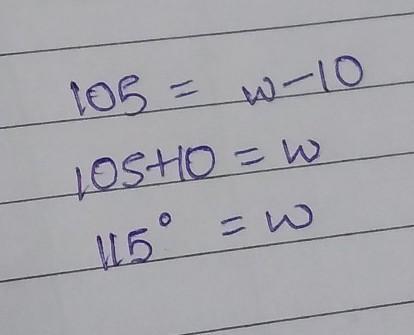 105 = w-10
105+10 = w
115° = w